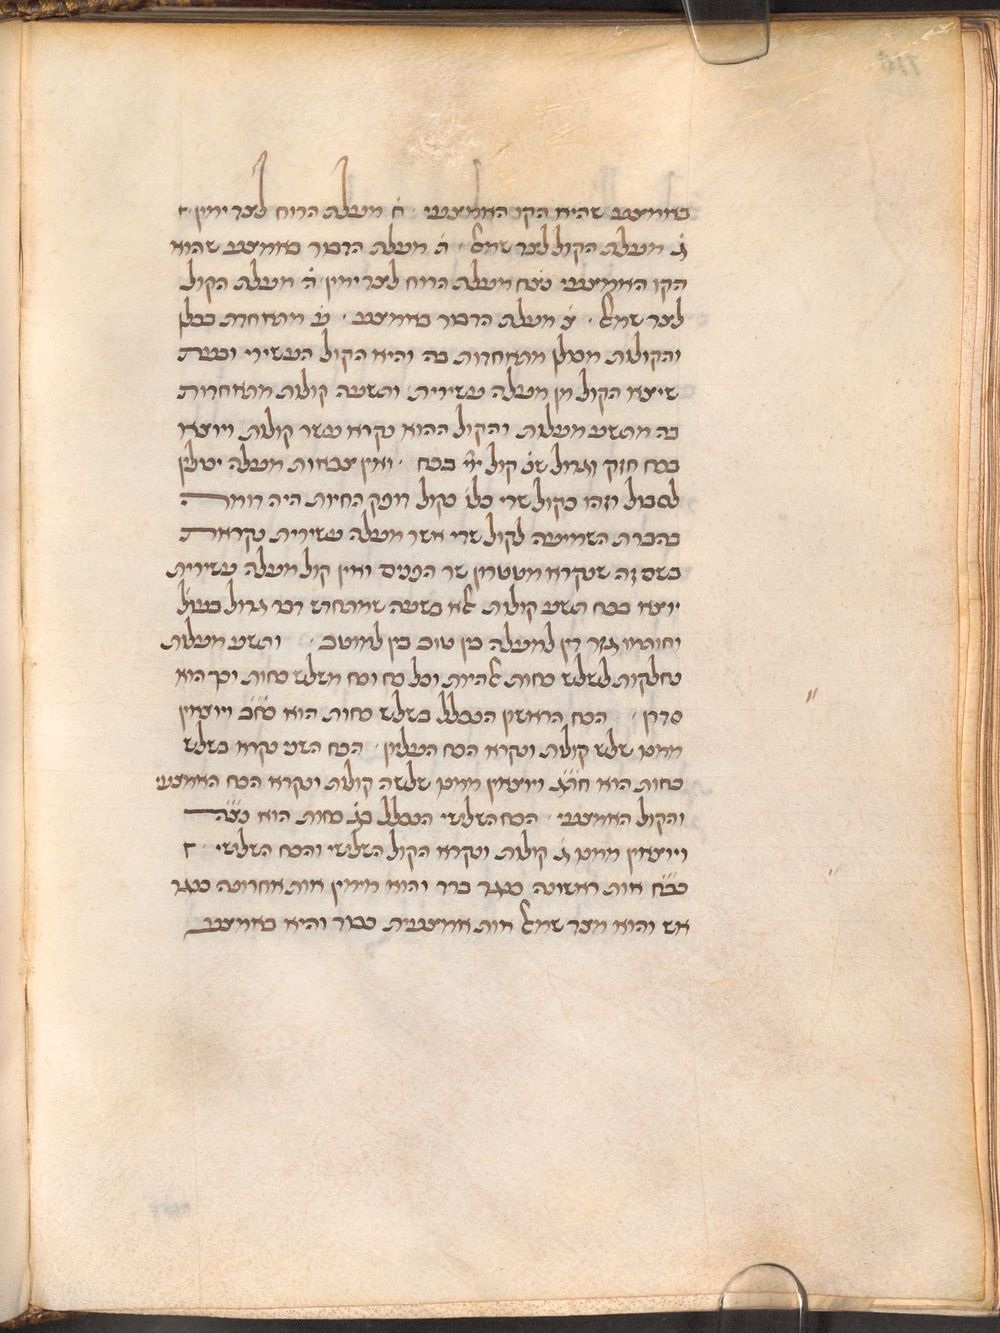 באמצע שהיא הקו האמצעי ׳ ח׳ מעלת הרוח לצד ימין ׳
ג׳ מעלת הקול לצד שמאל ׳ ה׳ מעלת הדבור באמצע שהוא
הקו האמצעי מעלת הרוח לצד ימין ה׳ מעלת הקול
לצד שמאל ׳ מעלת הדבור באמצע ׳ מתאחדת בכלן
והקולות מכולן מתאחדות בה והיא הקול העשירי ובעת
שיצא הקול מן מעלה עשירית ותשעה קולות מתאחדות
בה מתשע מעלות והקול ההוא נקרא עשר קולות ויוצא
בכח חזק וגדול שנ׳ קול יי׳ בכח ׳ ואין צבאות מעלה יכולין
לסבול וזהו כקול שדי כלו׳ כקול דופק החיות היה דומה
בהברת השמיעה לקול שדי אשר מעלה עשירית נקראת
בשם זה שנקרא מטטרון שר הפנים ואין קול מעלה עשירית
יוצא בכח תשע קולות אלא בשעה שמתחדש דבר גדול בעול׳
וחותמו גזר דין למעלה בין טוב בין למוטב ׳ ותשע מעלות
נחלקות לשלש כחות אלהיות וכל כח וכח משלש כחות וכך הוא
סדרן ׳ הכח הראשון הנכלל בשלש כחות הוא ויוצאין
ממנו שלש קולות ונקרא הכח העליון ׳ הכח השני נקרא בשלש
כחות הוא ויוצאין ממנו שלשה קולות ונקרא הכח האמצעי
והקול האמצעי ׳ הכח השלישי הנכלל בג׳ כחות הוא
ויוצאין ממנו ג׳ קולות ונקרא הקול השלישי והכח השלישי ׳
אות ראשונה כנגד ברד והוא מימין אות אחרונה כנגד
אש והוא מצד שמאל אות אמצעית והיא באמצע